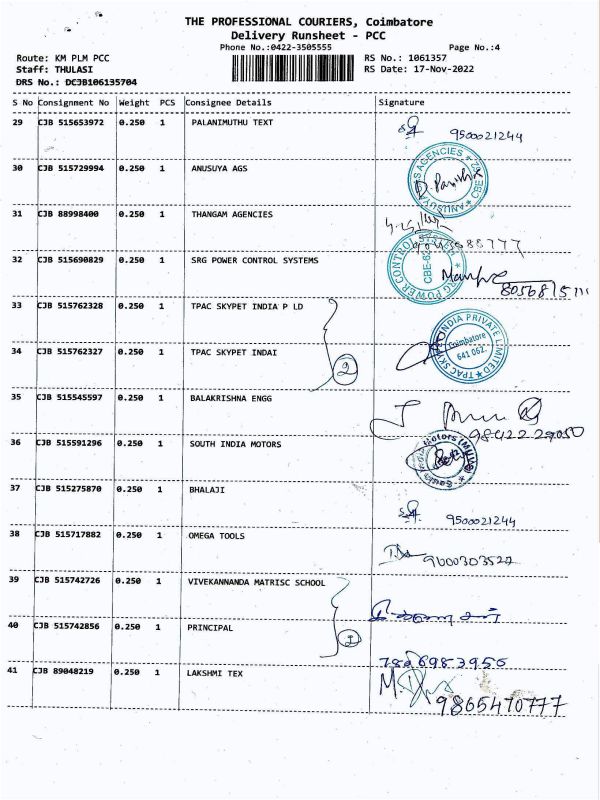 THE PROFESSIONAL COURIERS, Coimbatore
Delivery Runsheet - PCC
Phone No.:0422-3505555 Page No.:4
Route: KM PLM PCC RS No.: 1061357
Staff: THULASI RS Date: 17-Nov-2022
DRS No.: DCJB106135704
S No Consignment No Weight PCS Consignee Details Signature
29 CJB 515653972 0.250 1 PALANIMUTHU TEXT 9500021244
30 CJB 515729994 0.250 1 ANUSUYA AGS
ANUSUYA AGENCIES ★ CBE
31 CJB 88998400 0.250 1 THANGAM AGENCIES
32 CJB 515690829 0.250 1 SRG POWER CONTROL SYSTEMS
SRG POWER CONTROL
CBE-62
33 CJB 515762328 0.250 1 TPAC SKYPET INDIA P LD
34 CJB 515762327 0.250 1 TPAC SKYPET INDAI 2
TPAC SKYPET INDIA PRIVATE LIMITED ★
Coimbatore
641 062.
35 CJB 515545597 0.250 1 BALAKRISHNA ENGG
36 CJB 515591296 0.250 1 SOUTH INDIA MOTORS
South India Motors
37 CJB 515275870 0.250 1 BHALAJI 9500021244
38 CJB 515717882 0.250 1 OMEGA TOOLS
39 CJB 515742726 0.250 1 VIVEKANNANDA MATRISC SCHOOL
40 CJB 515742856 0.250 1 PRINCIPAL
41 CJB 89048219 0.250 1 LAKSHMI TEX 9865470777